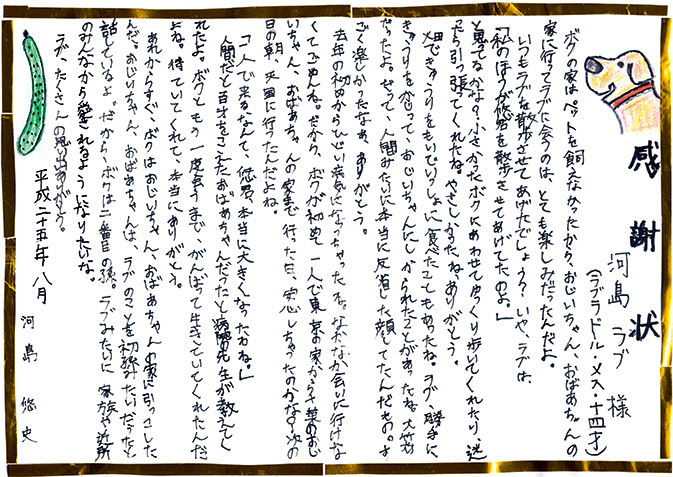 感謝状
河島 ラブ 様
(ラブラドール・メス・十四才)
ボクの家はペットを飼えなかったから、おじいちゃん、おばあちゃんの
家に行ってラブに会うのは、とても楽しみだったんだよ。
いつもラブを散歩させてあげたでしょう?いや、ラブは、
「私のほうが悠君を散歩させてあげてたのよ。」
と思ってるかな?小さかったボクにあわせてゆっくり歩いてくれたり、逆
に引っ張ってくれたね。やさしかったね。ありがとう。
畑できゅうりをもいでいっしょに食べたこともあったね。ラブ、勝手に
きゅうりをかじって、おじいちゃんにしかられたことがあったね。大笑い
だったよ。だって、人間みたいに本当に反省した顔してたんだもの。す
ごく楽しかったなあ。ありがとう。
去年の初めからひどい病気になっちゃったね。なかなか会いに行けな
くてごめんね。だから、ボクが初めて一人で東京の家から千葉のおじ
いちゃん、おばあちゃんの家まで行った日、安心しちゃったのかな?次の
日の朝、天国に行ったんだよね。
「一人で来るなんて、悠君、本当に大きくなったわね。」
人間だと百才をこえたおばあちゃんだったと獣医の先生が教えてく
れたよ。ボクともう一度会うまで、がんばって生きていてくれたんだ
よね。待っていてくれて、本当にありがとう。
あれからすぐ、ボクはおじいちゃん、おばあちゃんの家に引っこした
んだ。おじいちゃん、おばあちゃんは、ラブのことを初孫みたいだったと
話しているよ。だから、ボクは二番目の孫。ラブみたいに家族や近所
のみんなから愛されるようになりたいな。
ラブ、たくさんの思い出ありがとう。
平成二十五年八月
河島 悠史